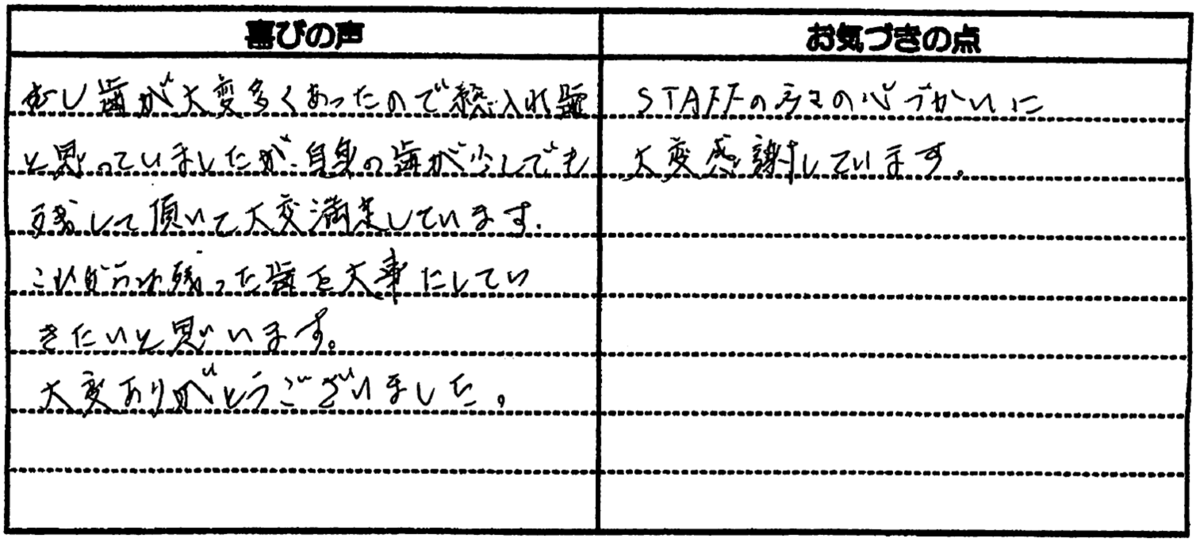 喜びの声
むし歯が大変多くあったので総入れ歯
と思っていましたが、自身の歯が少しでも
残して頂いて大変満足しています.
これからは残った歯を大事にしてい
きたいと思います。
大変ありがとうございました。
お気づきの点
STAFFの方々の心づかいに
大変感謝しています。